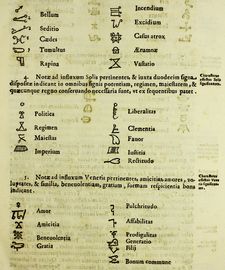 Bellum Incendium
Seditio Excidium
Cædes Casus atrox
Tumultus Ærumnæ
Rapina Vastatio
4. Notæ ad influxum Solis pertinentes, & iuxta duodecim signa
disposite indicant in omnibus signis potentiam, regimen, maiestatem, &
quæcunque regno conservando necessaria sunt, vt ex sequentibus patet.
Politica Liberalitas
Regimen Clementia
Maiestas Fanor
Imperium Iustitia
Rectitudo
5. Notæ ad influxum Veneris pertinentes, amicitias amores, vo-
luptates, & similia, benevolentiam, gratiam, formam respicientia bona
indicant.
Amor Pulchritudo
Amicitia Affabilitas
Benevolentia Prodigalitas
Gratia Generatio
Filij
Bonum commune